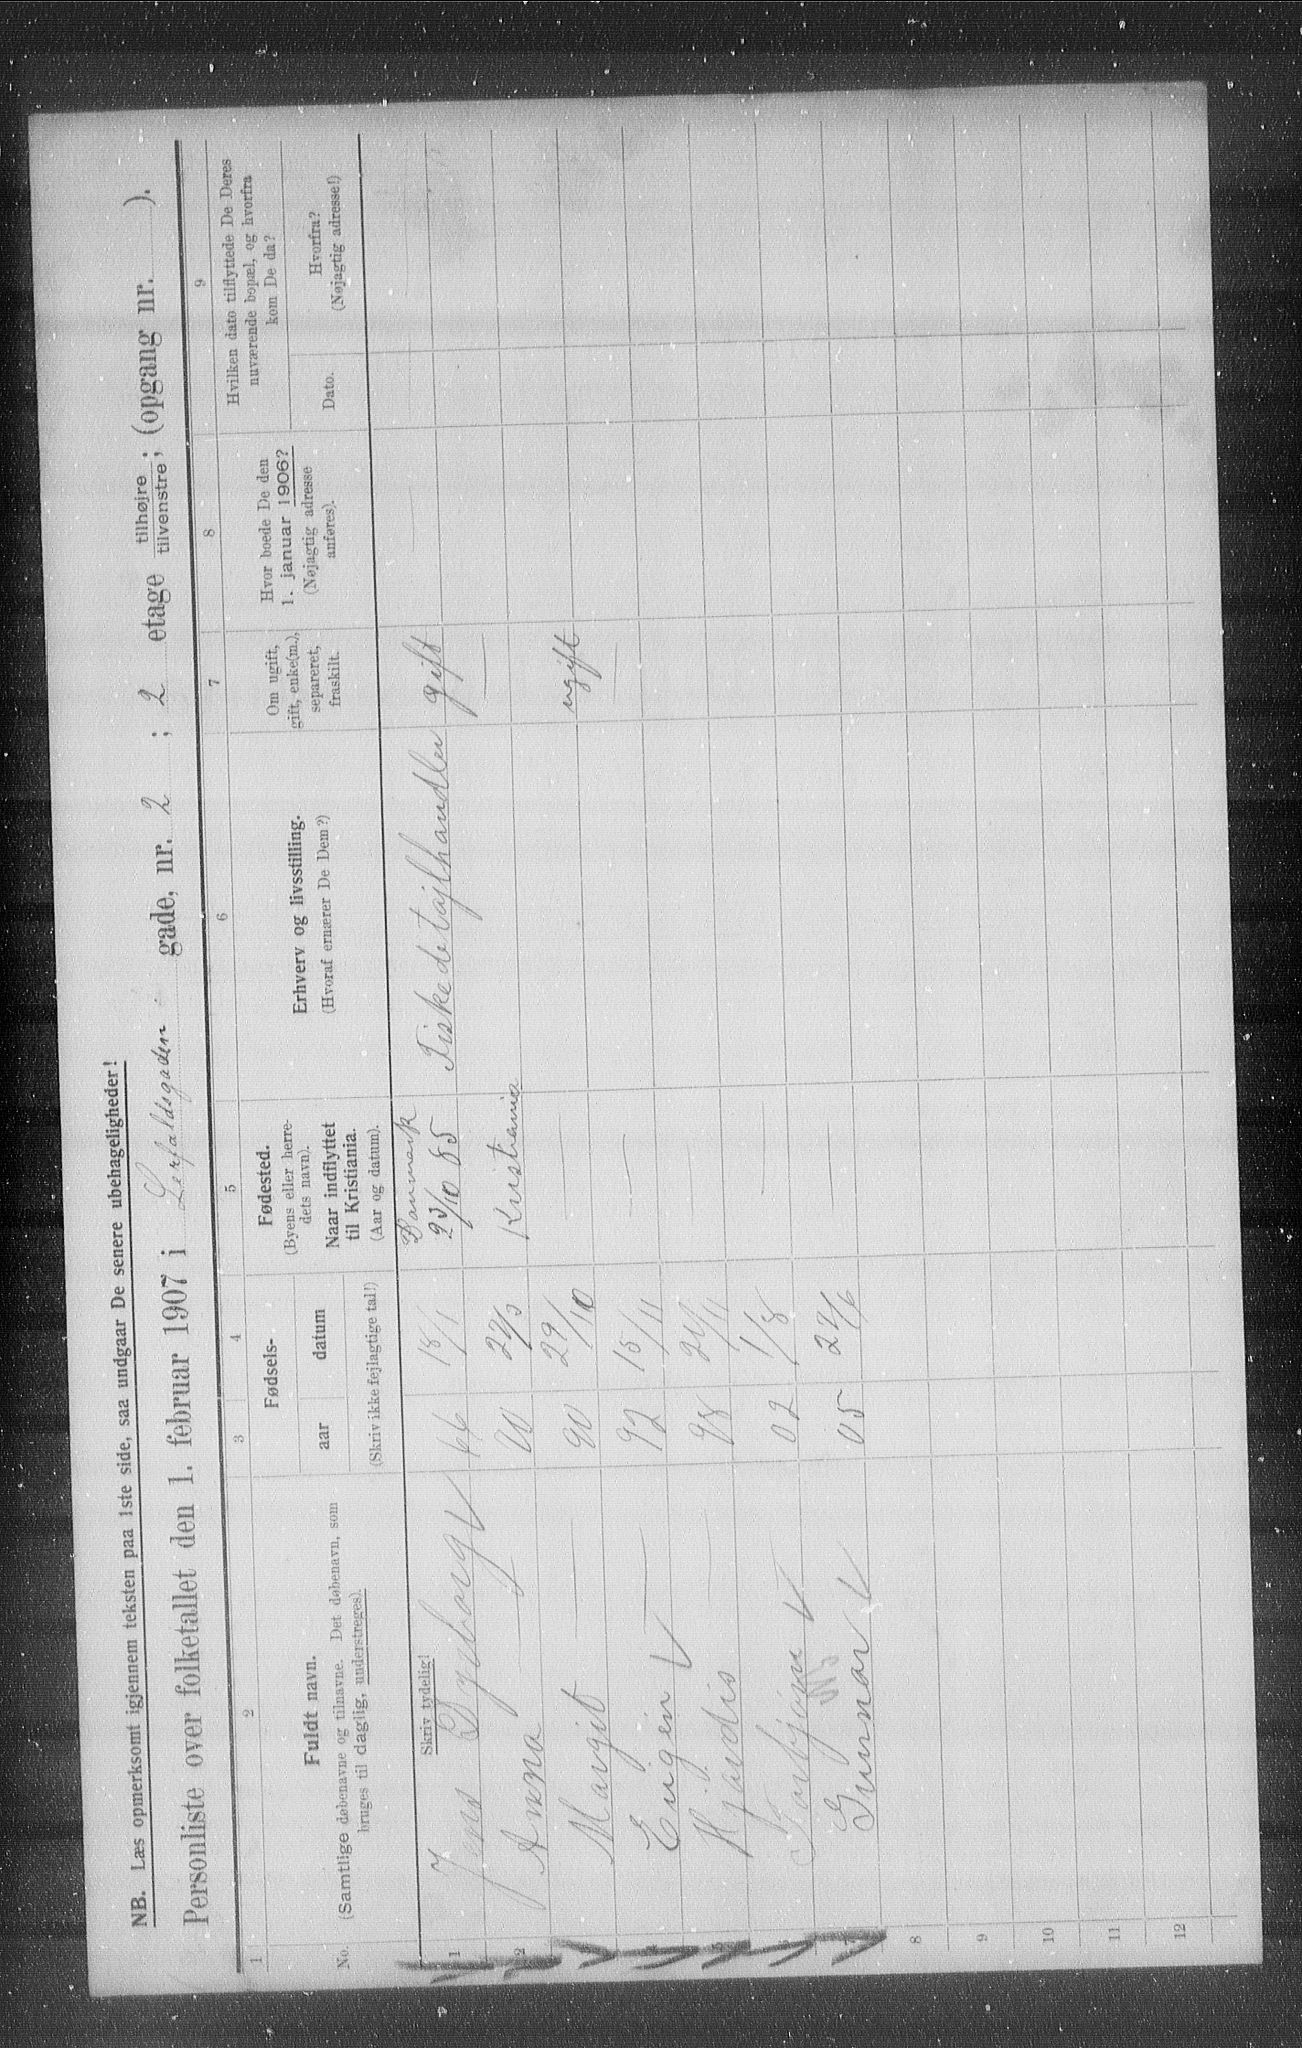 NB. Læs opmerksomt igjennem teksten paa 1ste side, saa undgaar De senere ubehageligheder!
Personliste over folketallet den 1. februar 1907 i Lerfaldsgaden gade, nr. 2 ; 2 etage tilhøjre tilvenstre ; (opgang nr. ).
1 2 3 4 5 6 7 8 9
No.
Fuldt navn.
(Samtlige døbenavne og tilnavne. Det døbenavn, som
bruges til daglig, understreges).
Fødsels-
aar datum
(Skriv ikke fejlagtige tal!)
Fødested.
(Byens eller herre-
dets navn).
Naar indflyttet
til Kristiania.
(Aar og datum).
Erhverv og livsstilling.
(Hvoraf ernærer De Dem?)
Om ugift,
gift, enke(m.),
separeret,
fraskilt.
Hvor boede De den
1. januar 1906?
(Nøjagtig adresse
anføres).
Hvilken dato tilflyttede De Deres
nuværende bopæl, og hvorfra
kom De da?
Dato.
Hvorfra?
(Nøjagtig adresse!)
Skriv tydelig!
1 Jens Dyeborg 66 18/1 Danmark 85 Fiskedetajlhandler gift
2 Anna — Kristiania —
3 Margit — 90 29/10 — ugift
4 Eugen — 92 15/11 — —
5 Hjørdis — 98
6 Torbjørn 02 1/8 —
7 Gunnar 05 —
8
9
10
11
12